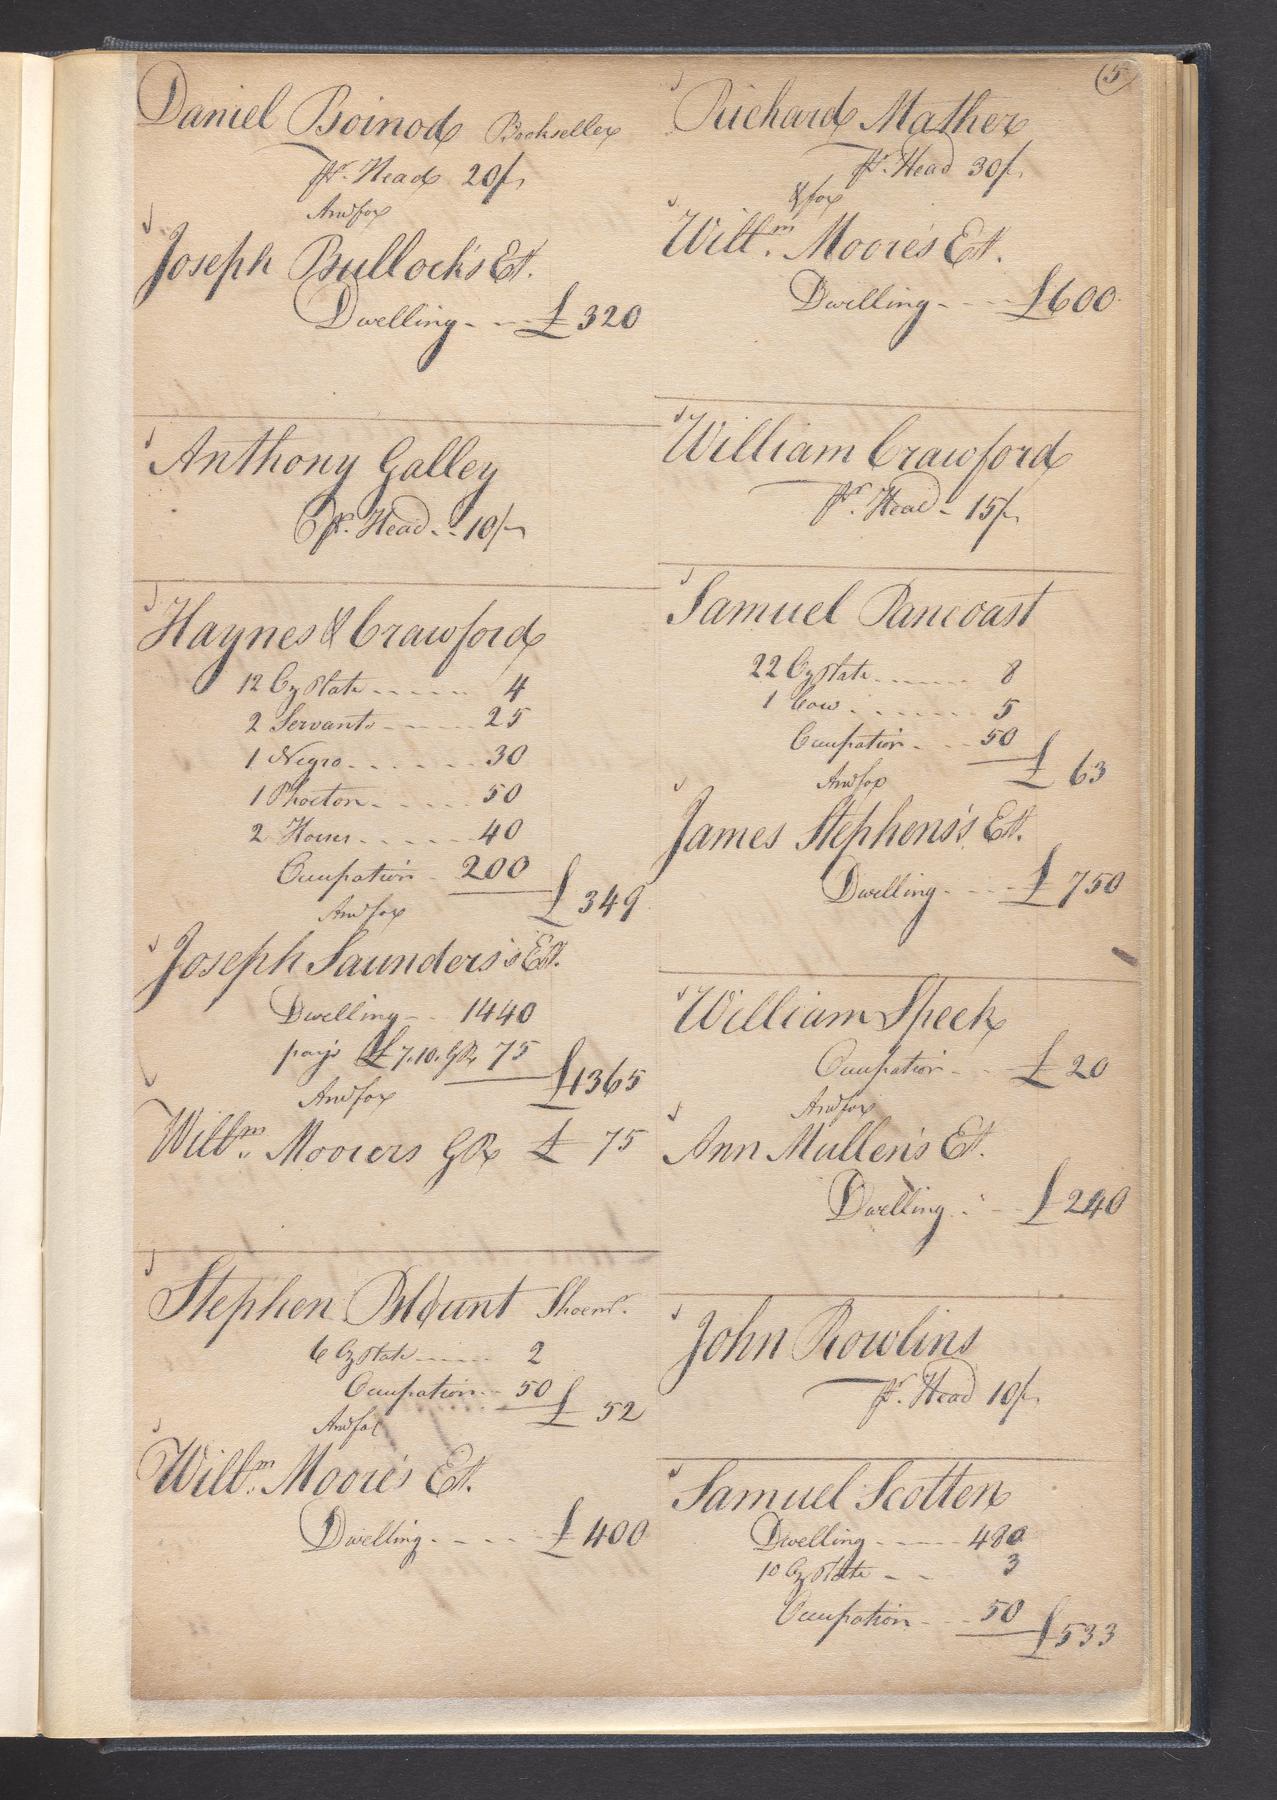 (5)
Daniel Boinod Bookseller
Pr. Head 20/-
And for
Joseph Bullock's Est.
Dwelling - - £ 320
Anthony Galley
Pr. Head - - 10/-
Haynes & Crawford
12 Oz Plate - - - - - 4
2 Servants - - - - - 25
1 Negro - - - - - - 30
1 Phaeton - - - - - 50
2 Horses - - - - - 40
Occupation - 200
£ 349
And for
Joseph Saunders's Est.
Dwelling - - 1440
pays £7.10. GR 75
£1365
And for
Willm. Moorers GR £ 75
Stephen Blount Shoemr.
6 Oz Plate - - - - - 2
Occupation - - 50
£ 52
And for
Willm. Moore's Est.
Dwelling - - - - £ 400
Richard Mather
Pr. Head 30/-
& for
Willm. Moore's Est.
Dwelling - - - £600
William Crawford
Pr. Head - 15/-
Samuel Pancoast
22 Oz Plate - - - - - 8
1 Cow - - - - - - 5
Occupation - - - 50
£ 63
And for
James Stephens's Est.
Dwelling - - - - £ 750
William Speek
Occupation - - - £ 20
And for
Ann Mullen's Est.
Dwelling - - - £ 240
John Rowlins
Pr. Head 10/-
Samuel Scotten
Dwelling - - - - - 480
10 Oz Plate - - - 3
Occupation - - - 50
£533